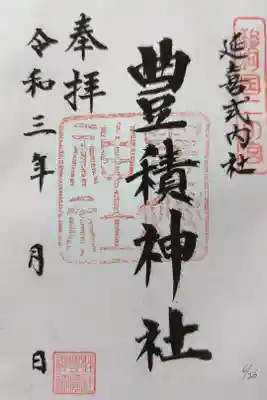 延喜式内社
豊積神社
奉拝
令和三年 月 日
6/26